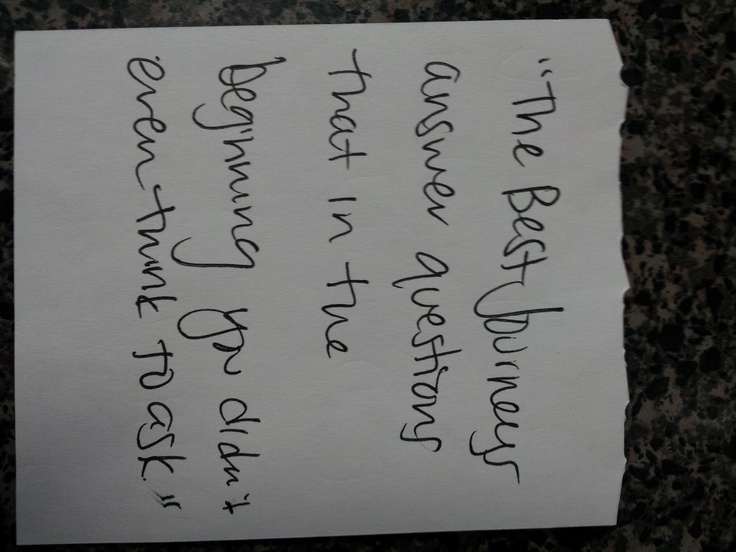 "The Best Journeys
answer questions
that in the
beginning you didn't
even think to ask."